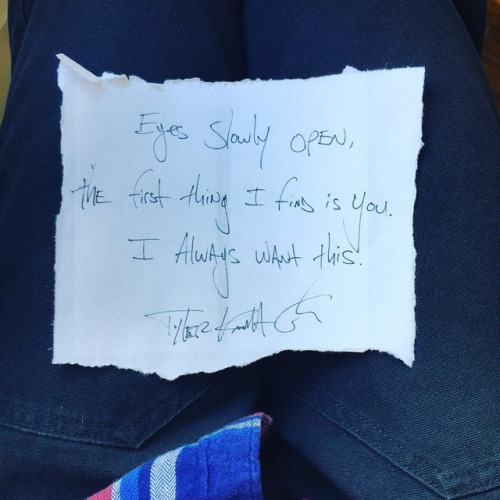 Eyes slowly OPEN,
the first thing I find is you.
I Always want this.
Tyler Knott G